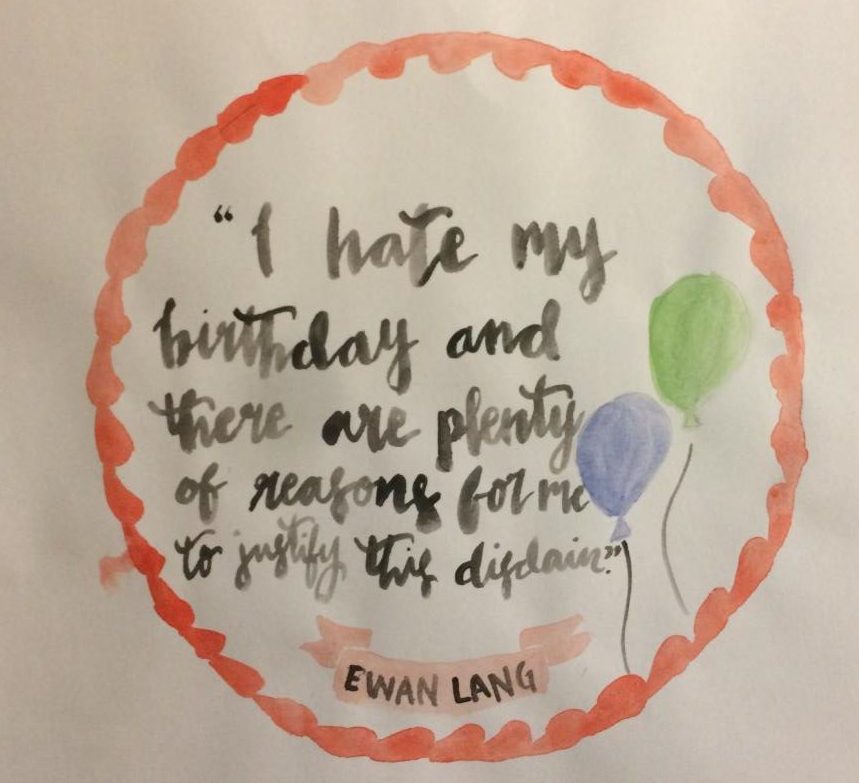 “I hate my
birthday and
there are plenty
of reasons for me
to justify this disdain.”
EWAN LANG